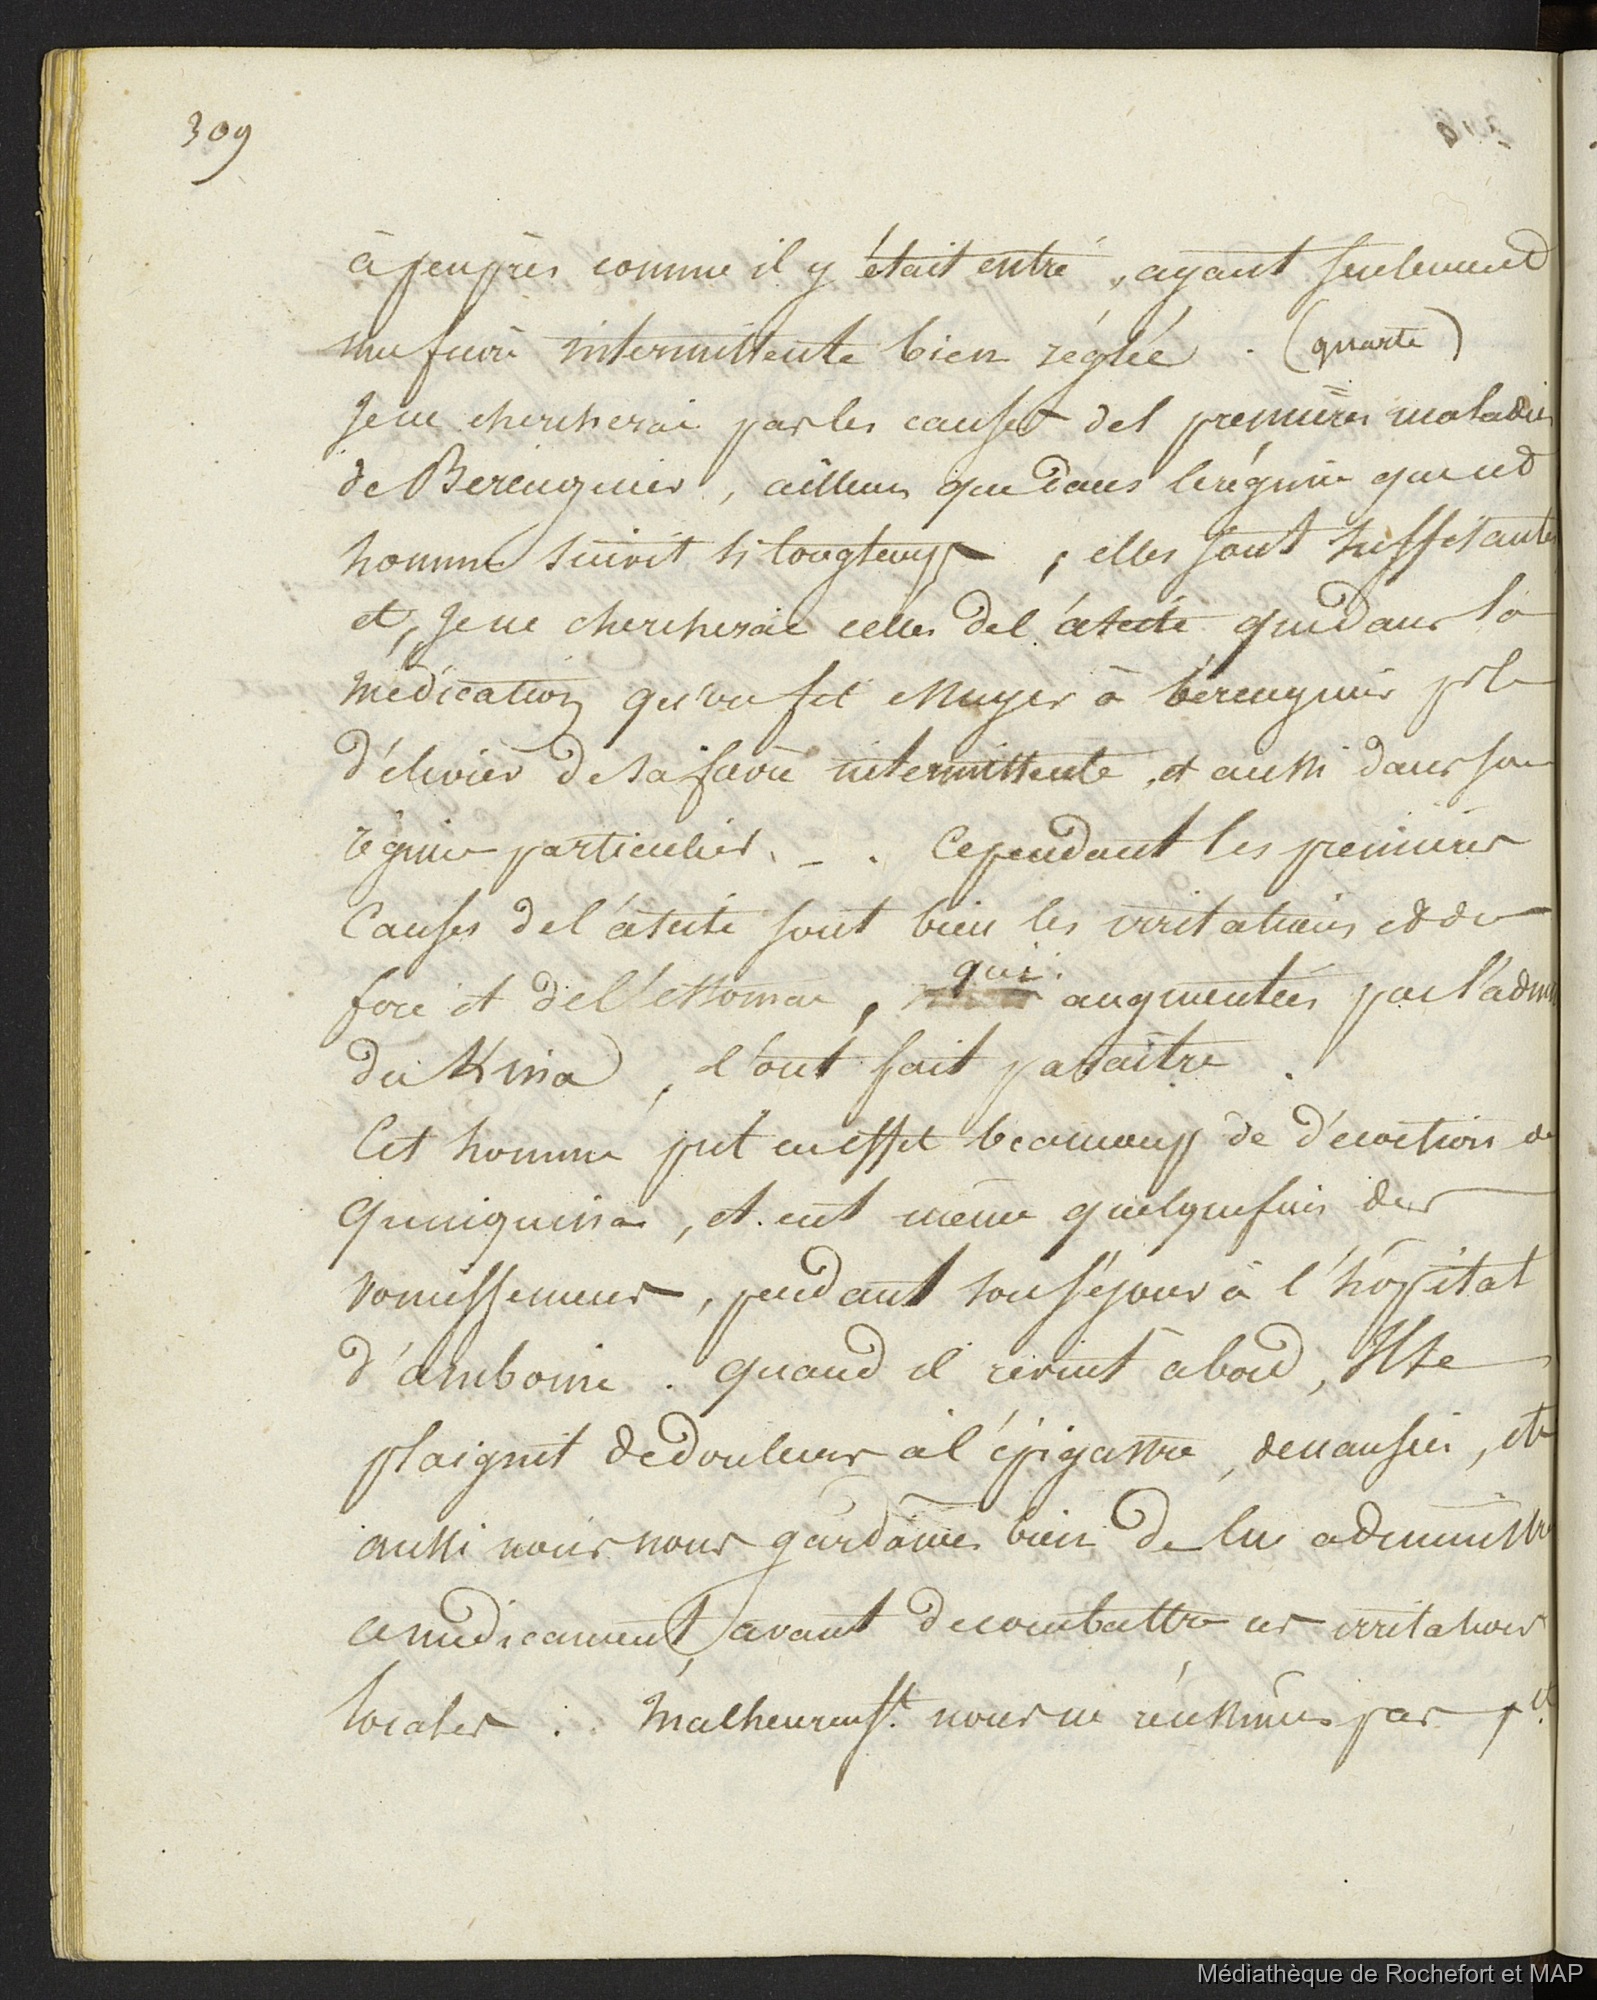 309
à peuprès comme il y était entré, ayant seulement
une fievre intermittente bien réglée. (quarte)
Je ne chercherai pas les causes des premières maladies
de Berenguier, ailleurs que dans le régime que cet
homme suivit si longtemps, elles sont suffisantes
et, je ne chercherai celles de l'ascite que dans la
médication qu'on fit essuyer à bérenguier pr le
délivrer de sa fievre intermittente, et aussi dans son
régime particulier. - . Cependant les premières
Causes de l'ascite sont bien les irritations et du
foie et de l'estomac, qui augmentées par l'adm
du Kina, l'ont fait paraître.
Cet homme prit en effet beaucoup de décoction de
Quinquina, et eut même quelquefois des
vomissemens, pendant son séjour à l'hôpital
d'amboine. quand il revint à bord, Il se
plaignit de douleurs à l'épigastre, de nausées, etc
aussi nous nous gardâmes bien de lui administrer
ce médicament, avant de combattre ces irritations
locales. Malheureust. nous ne réussîmes pas pt.
Médiathèque de Rochefort et MAP